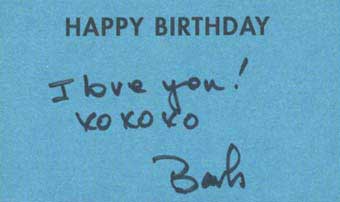 HAPPY BIRTHDAY
I love you!
xoxoxo
Barb